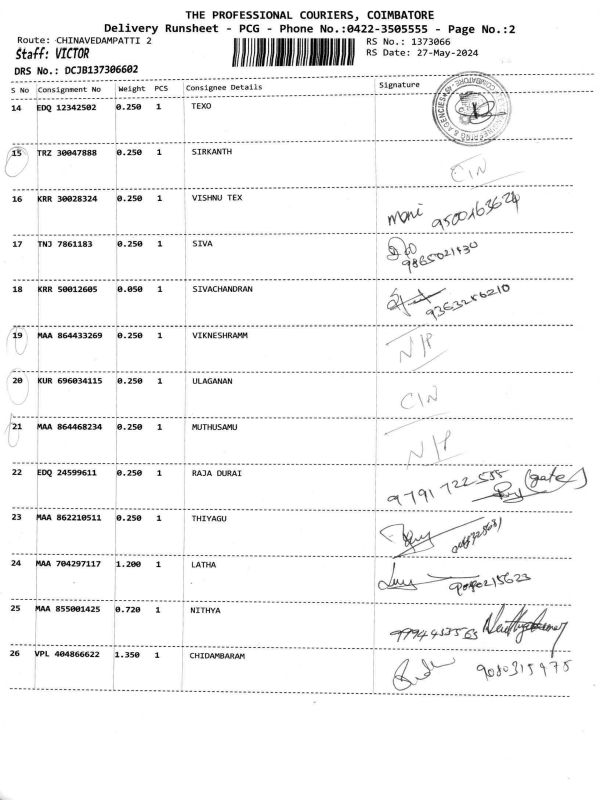 THE PROFESSIONAL COURIERS, COIMBATORE
Delivery Runsheet - PCG - Phone No.:0422-3505555 - Page No.:2
Route: CHINAVEDAMPATTI 2 RS No.: 1373066
Staff: VICTOR RS Date: 27-May-2024
DRS No.: DCJB137306602
S No Consignment No Weight PCS Consignee Details Signature
14 EDQ 12342502 0.250 1 TEXO
15 TRZ 30047888 0.250 1 SIRKANTH CIN
16 KRR 30028324 0.250 1 VISHNU TEX mani 9500163624
17 TNJ 7861183 0.250 1 SIVA 9865021430
18 KRR 50012605 0.050 1 SIVACHANDRAN 9363256210
19 MAA 864433269 0.250 1 VIKNESHRAMM N/P
20 KUR 696034115 0.250 1 ULAGANAN CIN
21 MAA 864468234 0.250 1 MUTHUSAMU N/P
22 EDQ 24599611 0.250 1 RAJA DURAI 9791722555 (gate)
23 MAA 862210511 0.250 1 THIYAGU
24 MAA 704297117 1.200 1 LATHA
25 MAA 855001425 0.720 1 NITHYA 9994433563
26 VPL 404866622 1.350 1 CHIDAMBARAM 9080315975